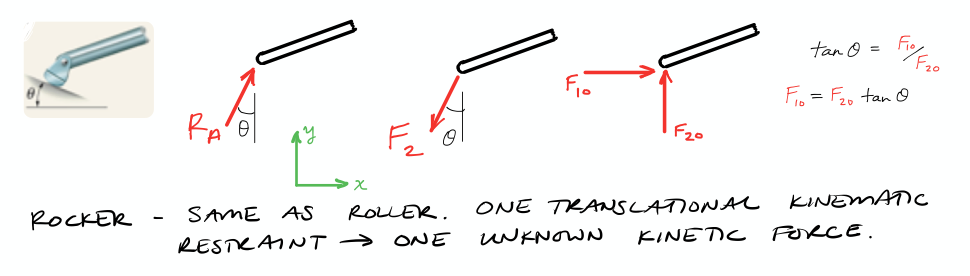 θ
R_A
θ
y
x
F_2
θ
F_10
F_20
tan θ = F_10/F_20
F_10 = F_20 tan θ
ROCKER – SAME AS ROLLER. ONE TRANSLATIONAL KINEMATIC
RESTRAINT → ONE UNKNOWN KINETIC FORCE.